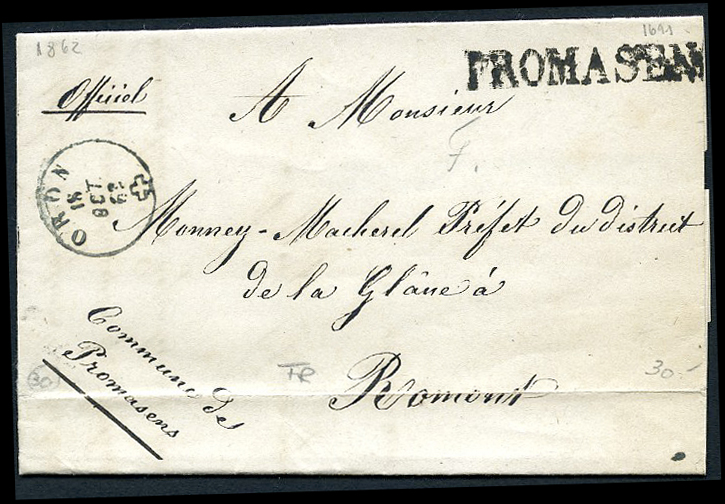 1862
1691
PROMASENS
Officiel
A Monsieur
F.
ORON
OCT
18
Monney-Macherel Préfet du district
de la Glâne à
Commune de
Promasens
FR
30
30.-
Romont